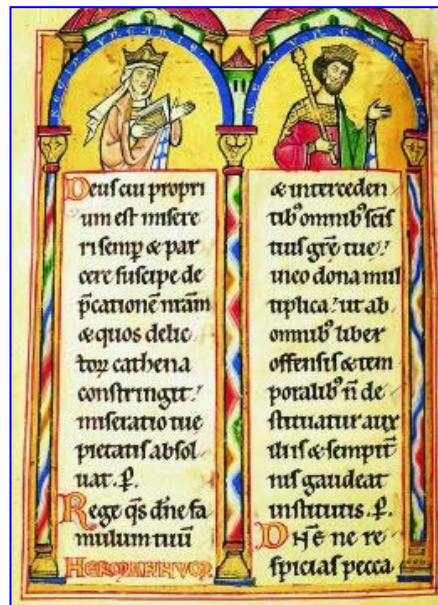 REGINA VNGARIE
Deus cui propri
um est misere
ri semp̱ & par
cere suscipe de
p̄cationē nr̄am
& quos delic
toꝝ cathena
constringit:
miseratio tue
pietatis absol
uat. P̱.
Rege q̄s dn̄e fa
mulum tuū
HERMANNVM
REX VNGARIE
& interceden
tibꝰ omnibꝰ sc̄is
tuis gr̄e tue:
in eo dona mul
tiplica: ut ab
omnibꝰ liber
offensis & tem
poralibꝰ n̄ de
stituatur aux
iliis & sempit̄
nis gaudeat
institutis. P̱.
DN̄E ne re
spicias pecca